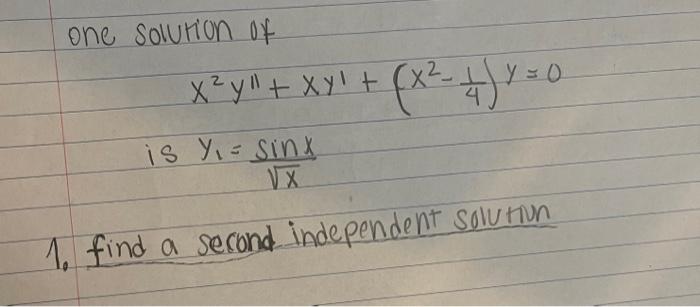 one solution of
x²y" + xy' + (x² - 1/4) y = 0
is y₁ = sinx/√x
1. find a second independent solution